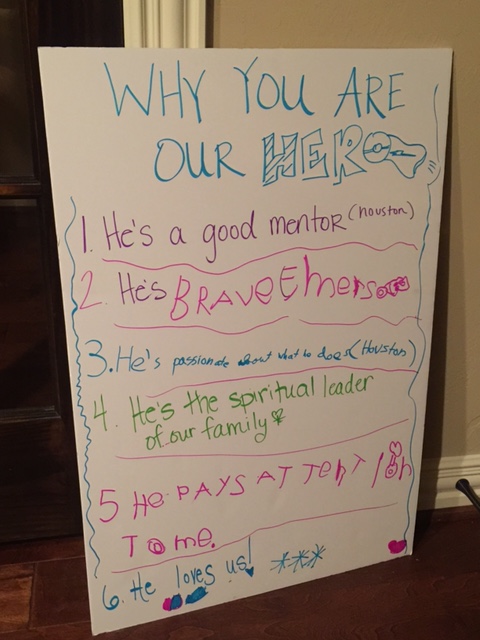 WHY YOU ARE
OUR HERO
1. He's a good mentor (houston)
2. He's BRAVE Emerson
3. He's passionate about what he does (Houston)
4. He's the spiritual leader
of our family
5 He PAYS ATTENTION
To me.
6. He loves us!